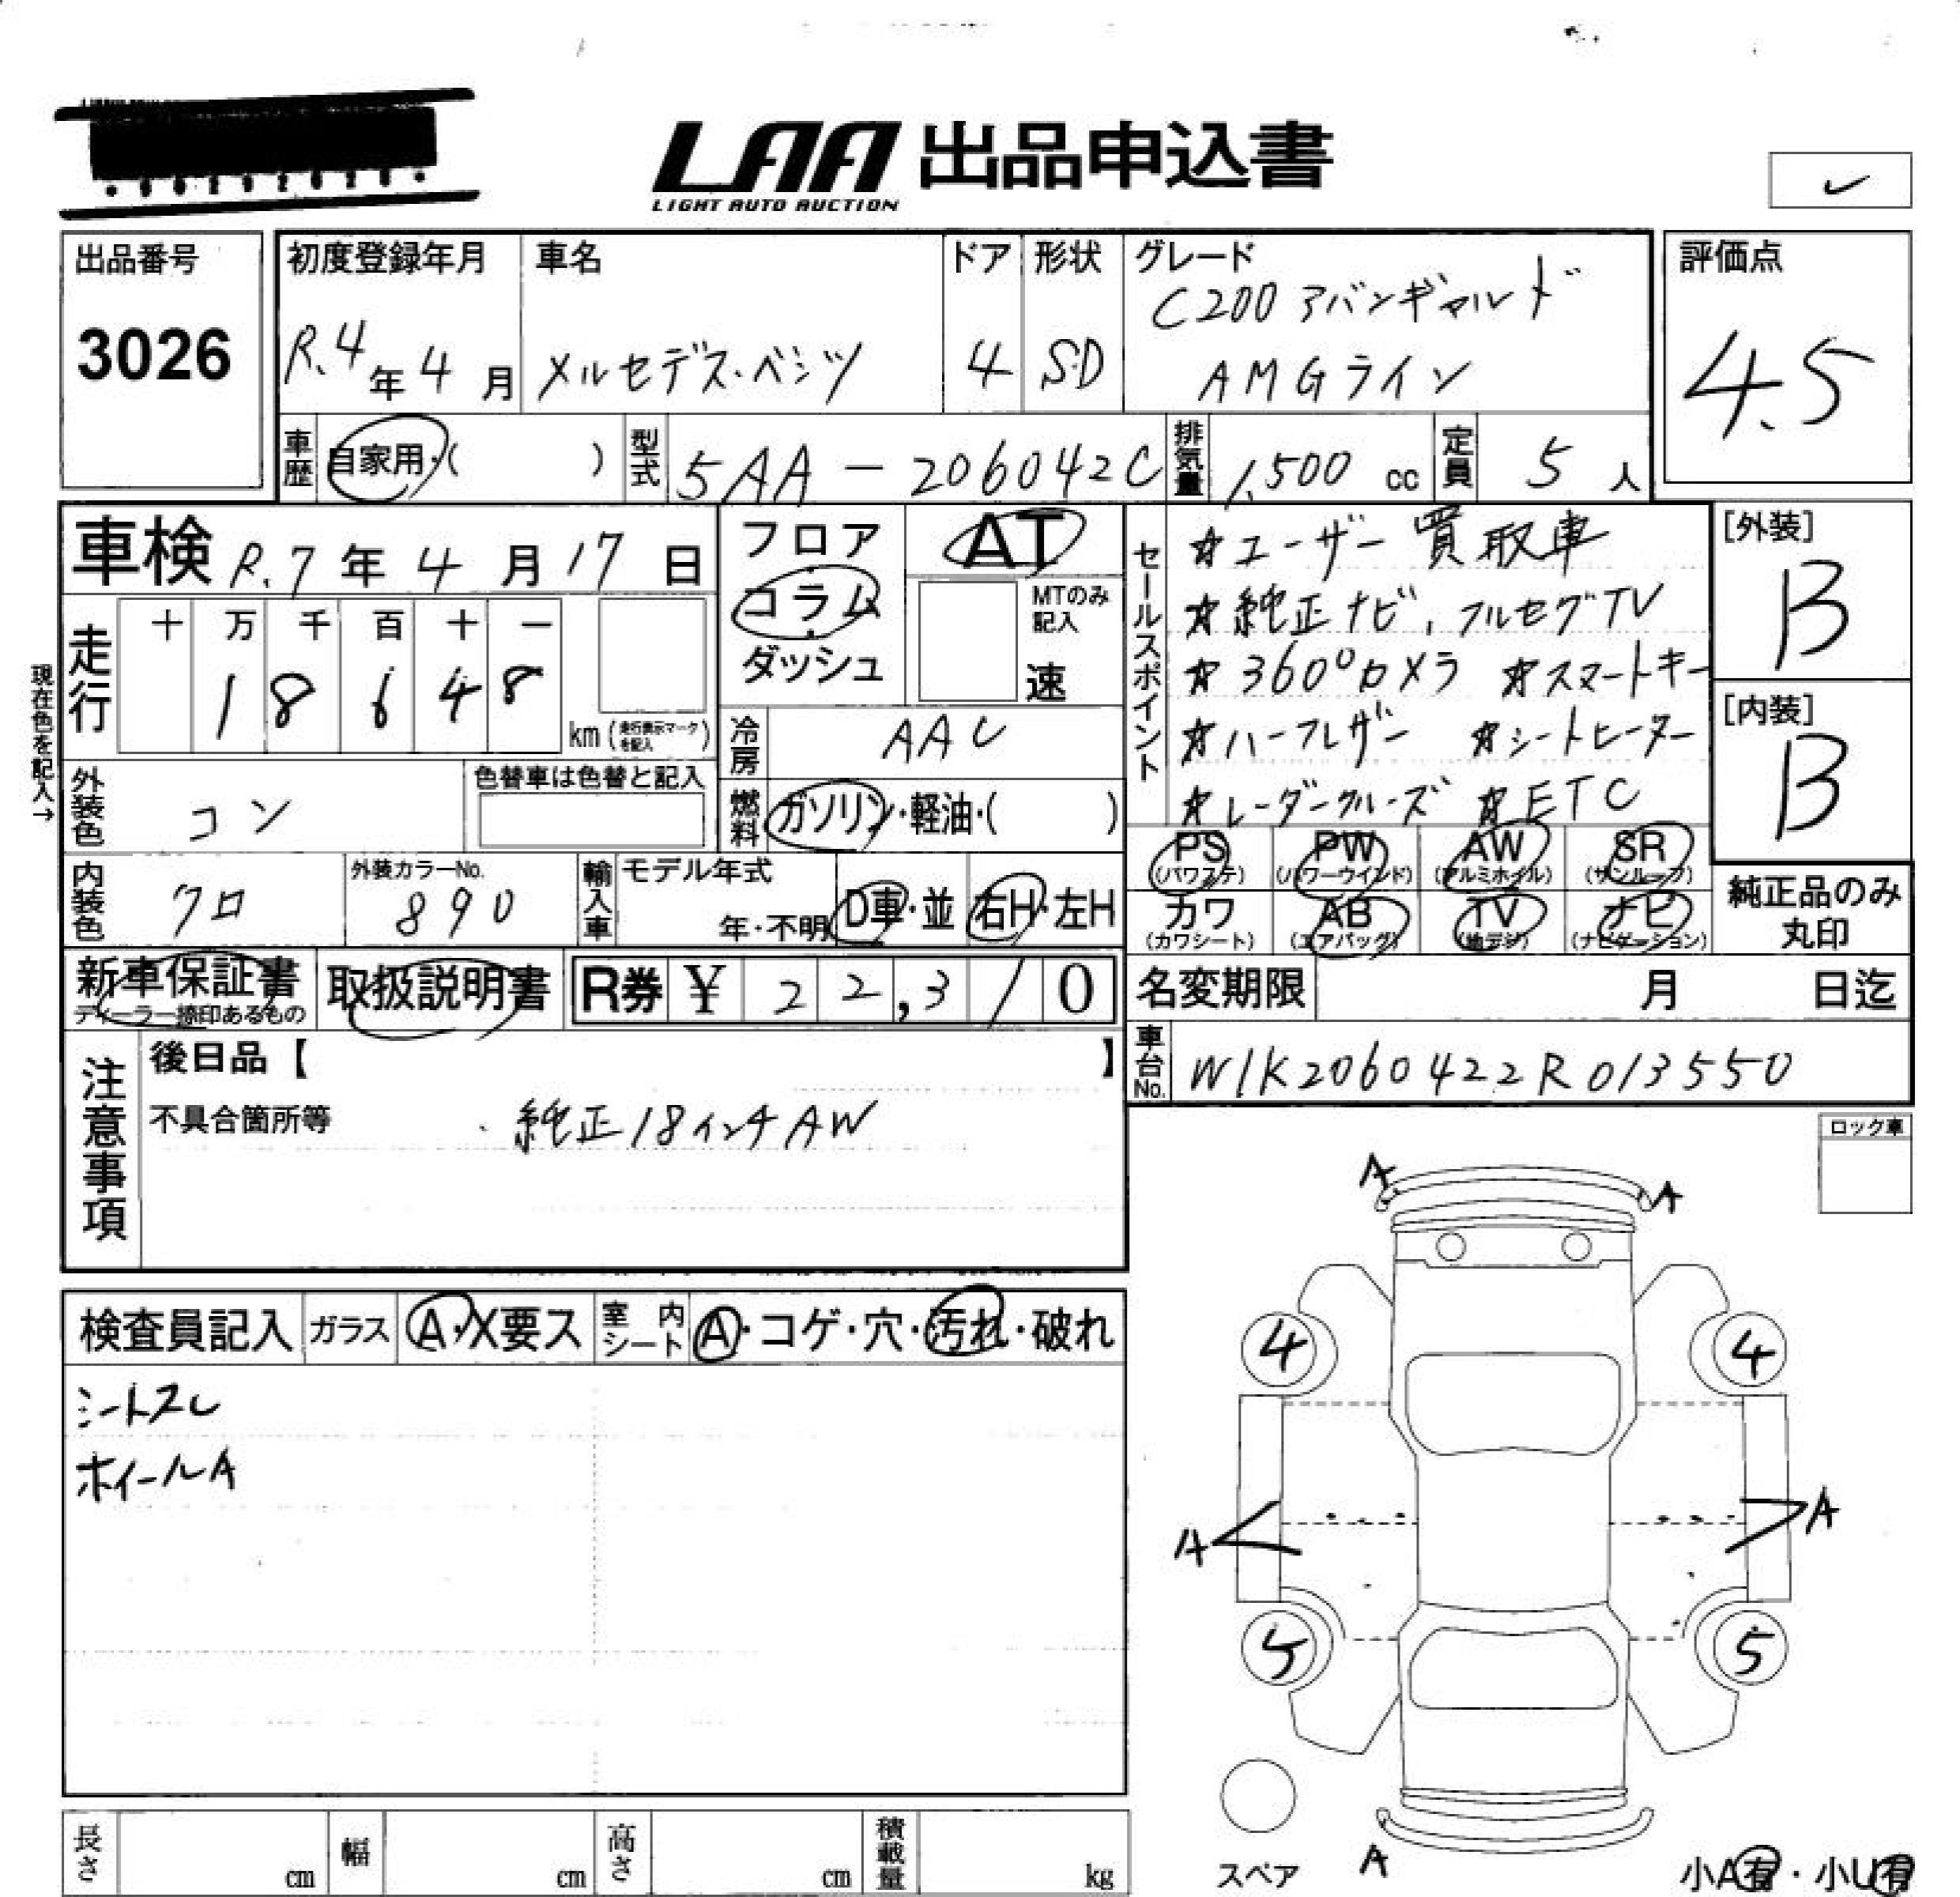 LAA 出品申込書
LIGHT AUTO AUCTION
出品番号
3026
初度登録年月
R.4年4月
車名
メルセデス・ベンツ
ドア
4
形状
SD
グレード
C200 アバンギャルド
AMGライン
評価点
4.5
車歴
自家用・( )
型式
5AA-206042C
排気量
1,500 cc
定員
5人
車検 R.7年4月17日
フロア・コラム・ダッシュ
AT
MTのみ記入
速
現在色を記入→
走行
十 万 千 百 十 一
1 8 6 4 8
km (走行表示マークを記入)
冷房
AAC
外装色
コン
色替車は色替と記入
燃料
ガソリン・軽油・( )
内装色
クロ
外装カラーNo.
890
輸入車
モデル年式
年・不明
D車・並
右H・左H
セールスポイント
☆ユーザー買取車
☆純正ナビ、フルセグTV
☆360°カメラ ☆スマートキー
☆ハーフレザー ☆シートヒーター
☆レーダークルーズ ☆ETC
[外装]
B
[内装]
B
PS (パワステ)
PW (パワーウインド)
AW (アルミホイル)
SR (サンルーフ)
カワ (カワシート)
AB (エアバッグ)
TV (地デジ)
ナビ (ナビゲーション)
純正品のみ丸印
新車保証書
ディーラー捺印あるもの
取扱説明書
R券 ¥ 22,310
名変期限 月 日迄
車台No.
W1K2060422R013550
注意事項
後日品【 】
不具合箇所等
・純正18インチAW
ロック車
検査員記入
ガラス
A・X要ス
室内シート
A・コゲ・穴・汚れ・破れ
シートスレ
ホイールA
A A
4 4
A A
5 5
A
スペア
小A有・小U有
長さ cm
幅 cm
高さ cm
積載量 kg